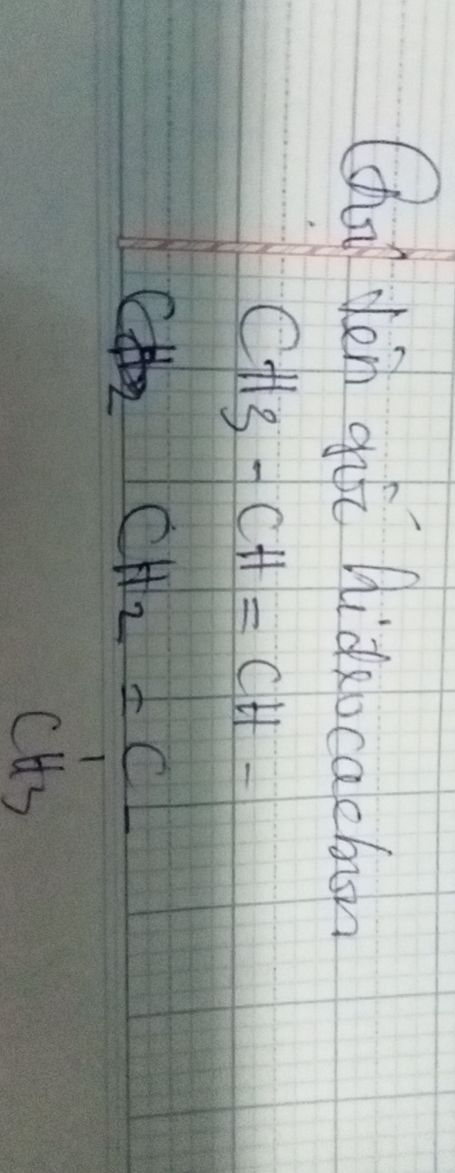 Gọi tên gốc hiđrocacbon
CH3 - CH = CH -
CH2 = C -
CH3